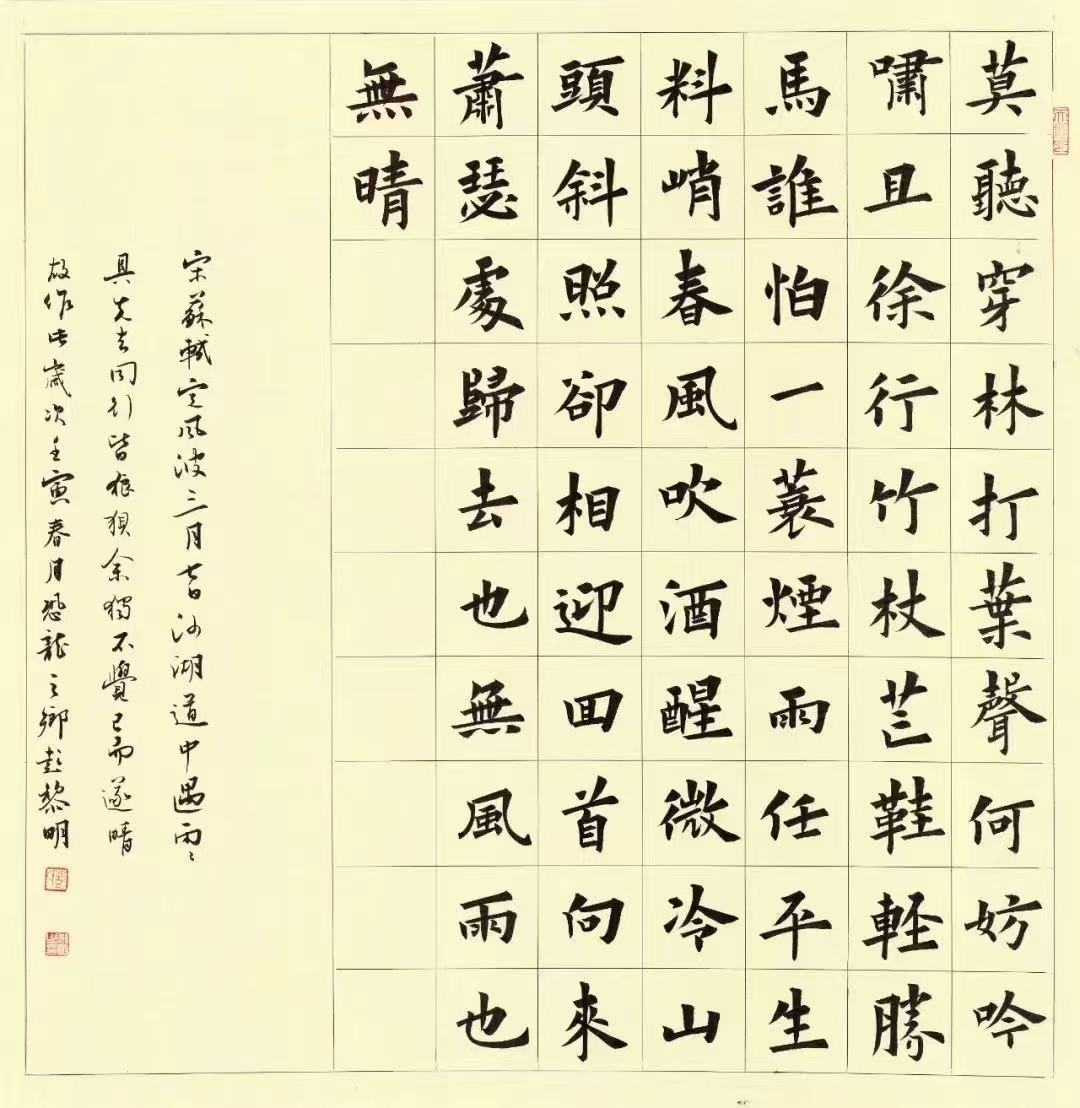 莫聽穿林打葉聲何妨吟
嘯且徐行竹杖芒鞋軽勝
馬誰怕一蓑煙雨任平生
料峭春風吹酒醒微冷山
頭斜照卻相迎回首向來
蕭瑟處歸去也無風雨也
無晴
宋蘇軾定風波三月七日沙湖道中遇雨〻
具先去同行皆狼狽余獨不覺已而遂晴
故作此歲次壬寅春月恐龍之鄉彭黎明